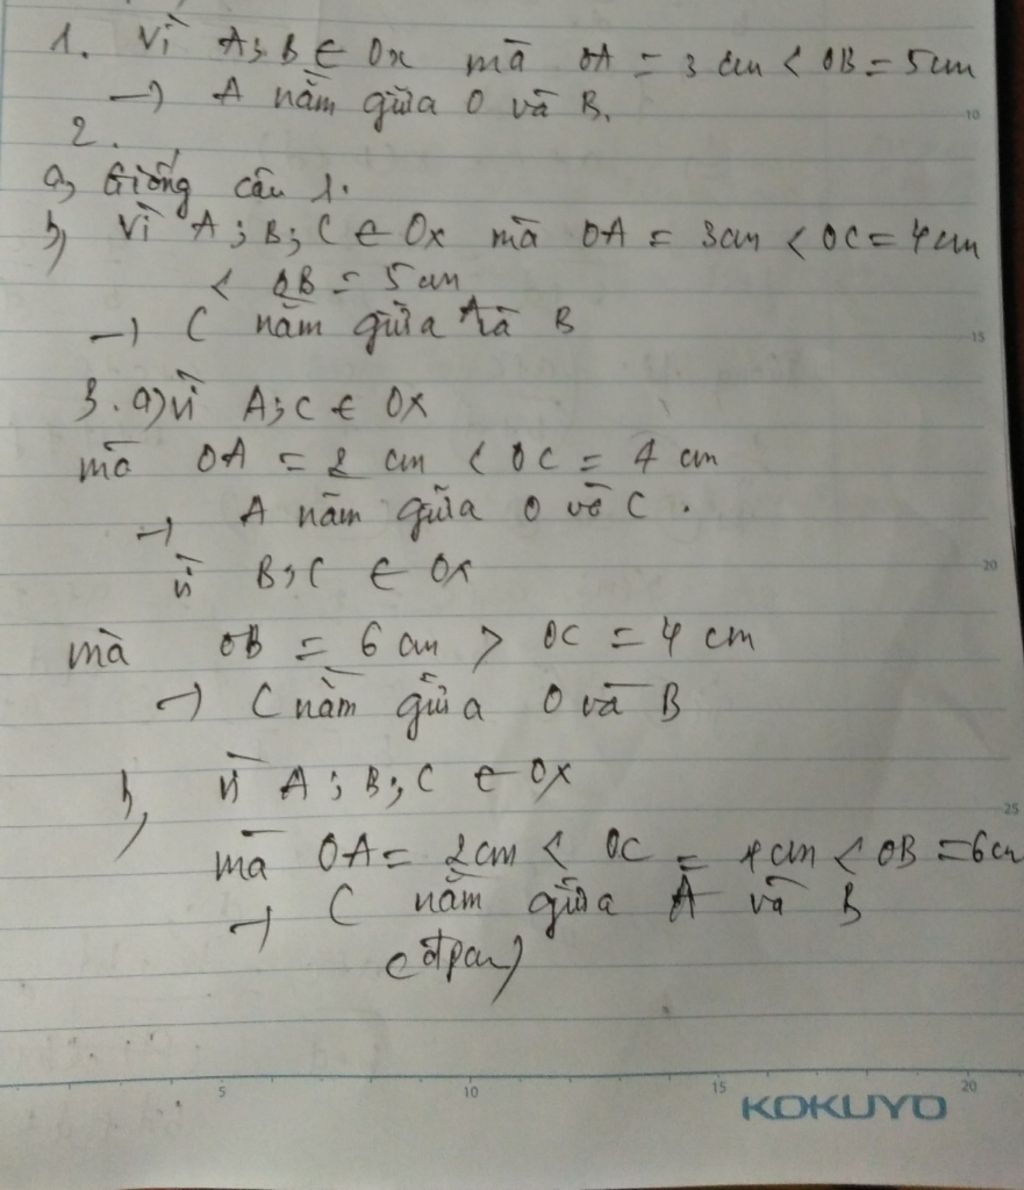 1. Vì A; B ∈ Ox mà OA = 3 cm < OB = 5 cm
→ A nằm giữa O và B.
10
2.
a, Giống câu 1.
b, Vì A; B; C ∈ Ox mà OA = 3cm < OC = 4 cm
< OB = 5 cm
→ C nằm giữa A và B
15
3. a) vì A; C ∈ Ox
mà OA = 2 cm < OC = 4 cm
→ A nằm giữa O và C.
vì B; C ∈ Ox
20
mà OB = 6 cm > OC = 4 cm
→ C nằm giữa O và B
b, vì A; B; C ∈ Ox
25
mà OA = 2cm < OC = 4cm < OB = 6cm
→ C nằm giữa A và B
(đpcm)
5 10 15 20
KOKUYO